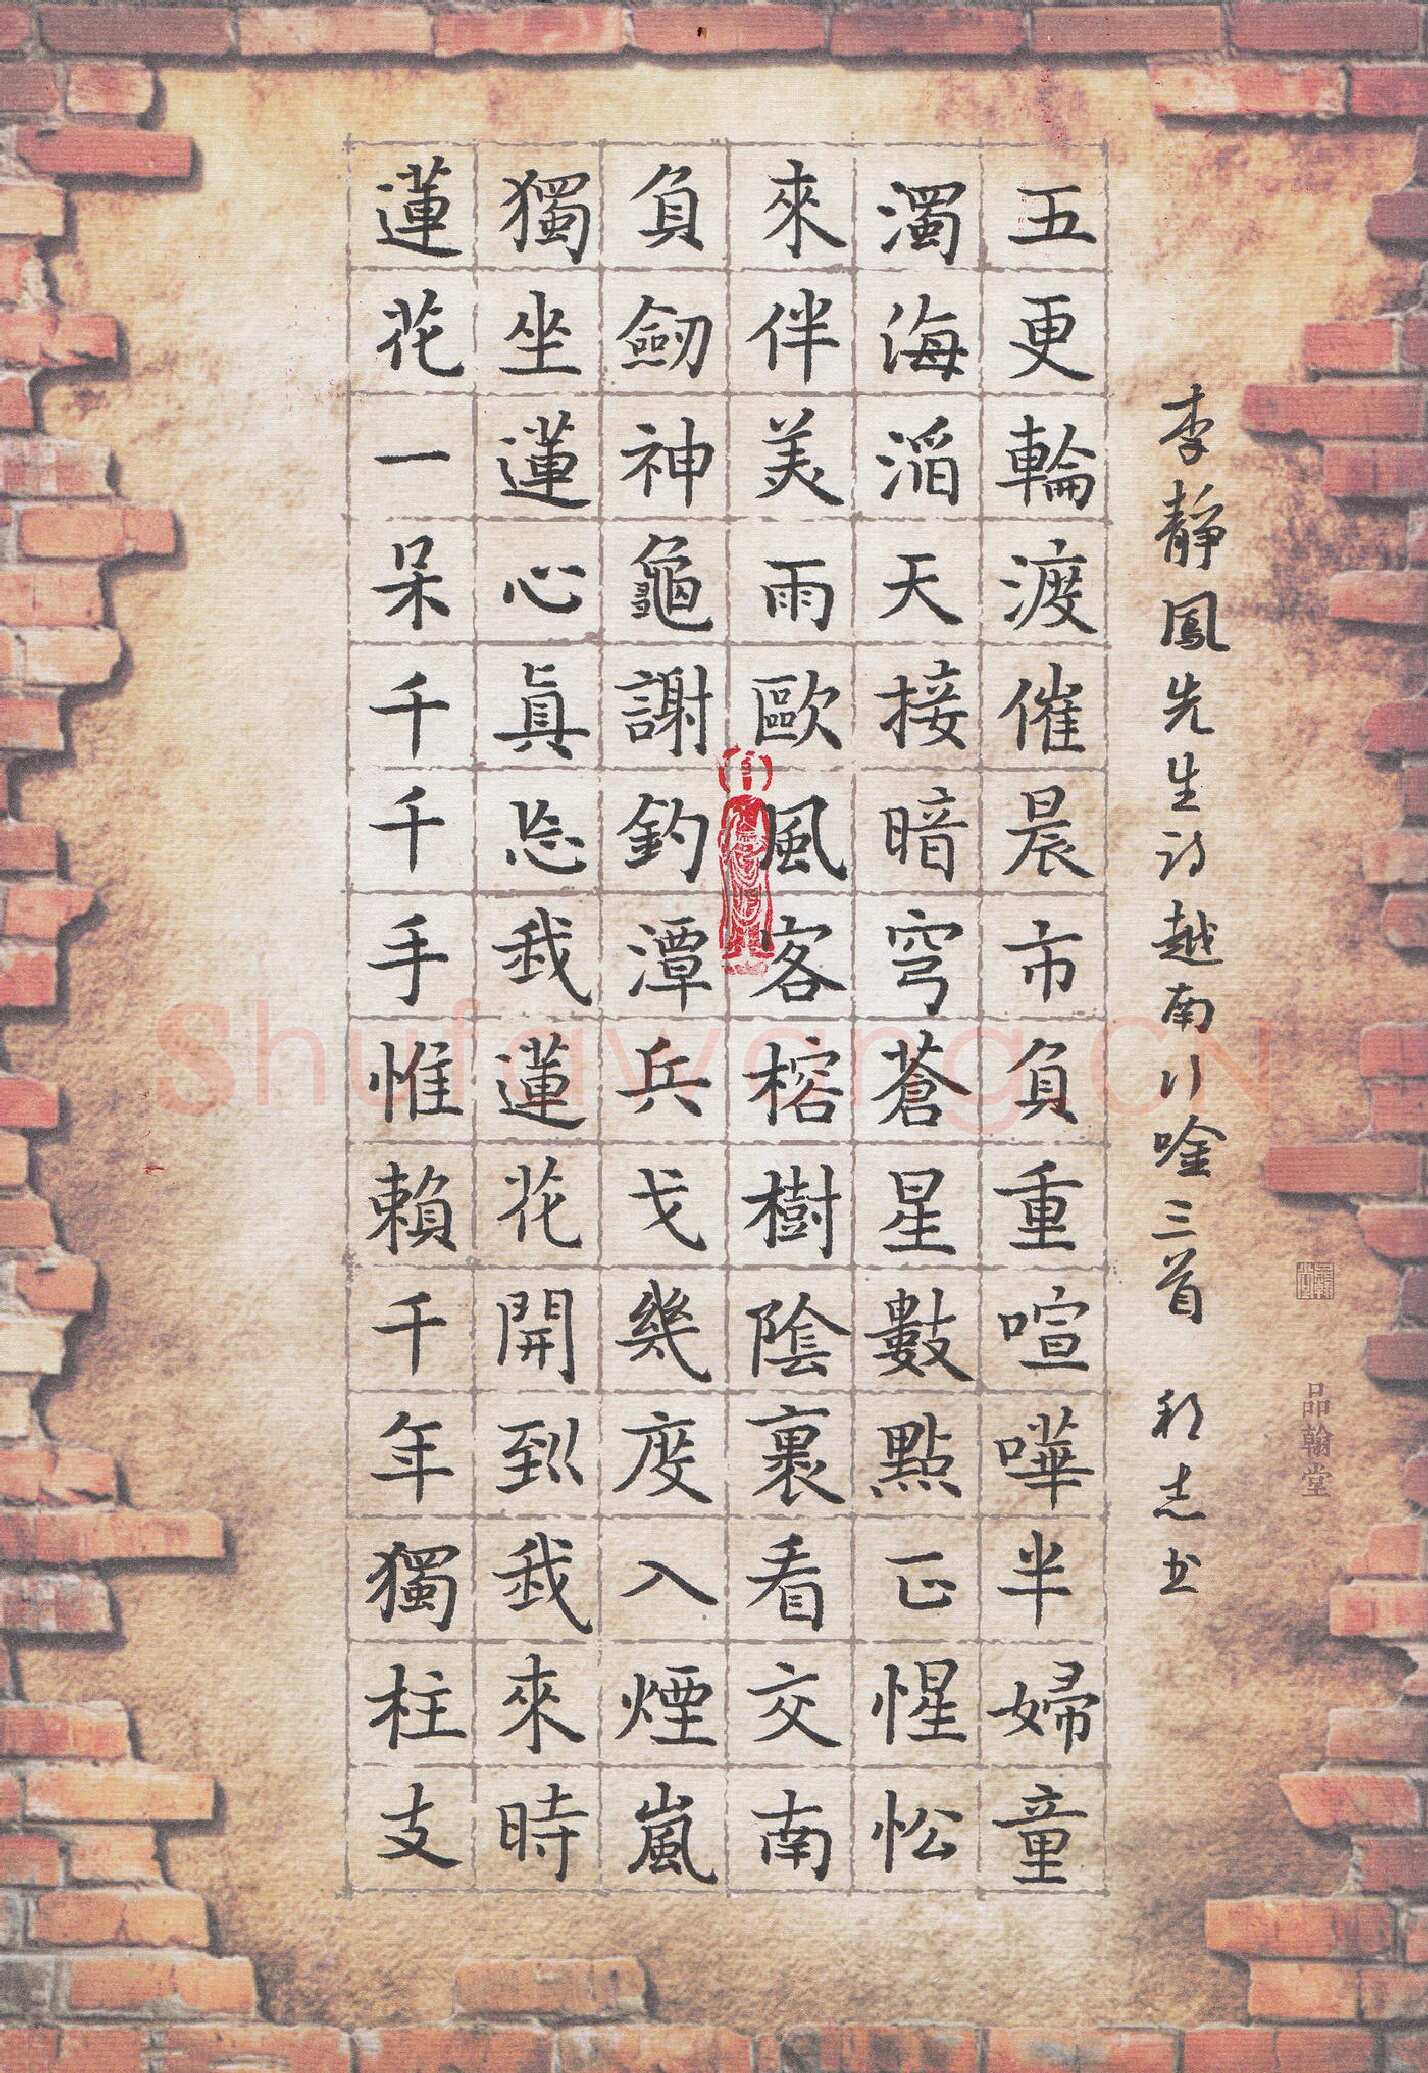 李靜鳳先生詩越南行唫三首 志书
五更輪渡催晨市負重喧嘩半婦童
濁海滔天接暗穹蒼星數點正惺忪
來伴美雨歐風客榕樹陰裏看交南
負劒神龜謝釣潭兵戈幾度入煙嵐
獨坐蓮心眞忘我蓮花開到我來時
蓮花一呆千千手惟賴千年獨柱支
品翰堂
Shufawang.CN